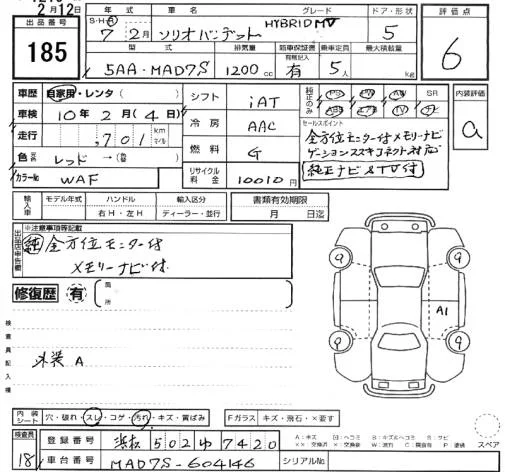 2月12日
出品番号
185
年式 車名 グレード ドア・形状
S・H・R 7年2月 ソリオバンデット HYBRID MV 5
型式 排気量 新車保証書 乗車定員 最大積載量
5AA-MAD7S 1200cc 有 5人 kg
評価点
6
車歴 自家用・レンタ( )
車検 10年2月(4日)
走行 ,701 km マイル
色 レッド →( )
カラーNo WAF
シフト iAT
冷房 AAC
燃料 G
リサイクル料金 10010円
純正のみ PS PW AW SR
ABS エアB TV ナビ
セールスポイント
全方位モニター付メモリーナビ
ゲーションスズキコネクト対応
純正ナビ&TV付
内装評価
a
輸入車 モデル年式 ハンドル 輸入区分
年 右H・左H ディーラー・並行
書類有効期限
月 日迄
出品店申告欄 ※注意事項等記載
純 全方位モニター付
メモリーナビ付
修復歴 有 箇所
検査員記入欄
外装 A
A1
9 9 9 9
内装シート 穴・破れ・スレ・コゲ・汚れ・キズ・黄ばみ
Fガラス キズ・飛石・×要す
検査員
18
登録番号 浜松 502 ゆ 7420
車台番号 MAD7S-604146
シリアルNo
A:キズ
スペア